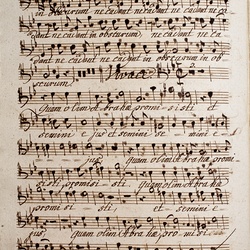 obscurum ne cadant ne ca
dant ne cadant in obscurum ne cadant ne ca
dant ne cadant ne cadant in obscurum in ob
scurum.
Quam olim Abrahæ promi si sti et
semini e jus et semini se mini e
jus, quam olim Abrahæ promi
sisti promi sti, quam olim Abrahæ
promi si sti, et semini e
jus quam olim Abra hæ, pro mi si